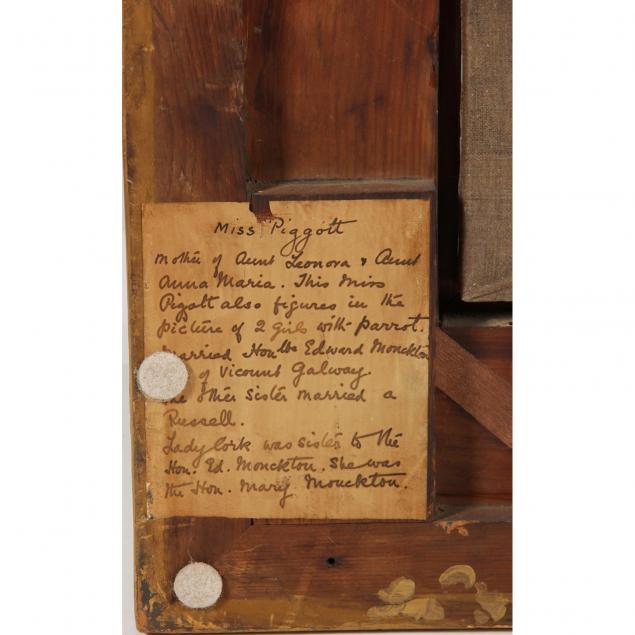 Miss Piggott
Mother of Aunt Leonora & Aunt
Anna Maria. This Miss
Pigott also figures in the
picture of 2 girls with parrot.
Married Honble Edward Monckton
of Vicount Galway.
The other sister married a
Russell.
Lady Cork was sister to the
Hon. Ed. Monckton. She was
the Hon. Mary Monckton.